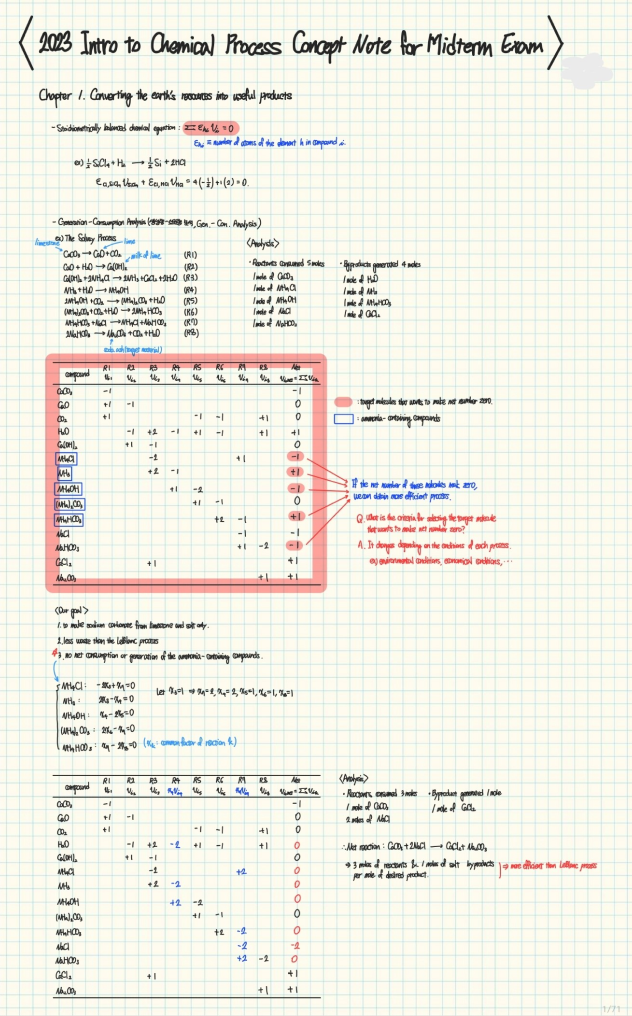 <2023 Intro to Chemical Process Concept Note for Midterm Exam>
Chapter 1. Converting the earth's resources into useful products
- Stoichiometrically balanced chemical equation : Σ εₕᵢ νᵢ = 0
εₕᵢ = number of atoms of the element h in compound i.
ex) ½ SiCl₄ + H₂ → ½ Si + 2HCl
= 4(-½) + 1(2) = 0.
- Generation-Consumption Analysis (Gen.-Con. Analysis)
ex) The Solvay Process
limestone
lime
CaCO₃ → CaO + CO₂ (R1)
milk of lime
CaO + H₂O → Ca(OH)₂ (R2)
Ca(OH)₂ + 2NH₄Cl → 2NH₃ + CaCl₂ + 2H₂O (R3)
NH₃ + H₂O → NH₄OH (R4)
2NH₄OH + CO₂ → (NH₄)₂CO₃ + H₂O (R5)
(NH₄)₂CO₃ + CO₂ + H₂O → 2NH₄HCO₃ (R6)
NH₄HCO₃ + NaCl → NH₄Cl + NaHCO₃ (R7)
2NaHCO₃ → Na₂CO₃ + CO₂ + H₂O (R8)
soda ash (target material)
<Analysis>
· Reactants consumed 5 moles
1 mole of CaCO₃
1 mole of NH₄Cl
1 mole of NH₄OH
1 mole of NaCl
1 mole of NaHCO₃
· Byproducts generated 4 moles
1 mole of H₂O
1 mole of NH₃
1 mole of NH₄HCO₃
1 mole of CaCl₂
R1 R2 R3 R4 R5 R6 R7 R8 Net
compound
CaCO₃ -1 -1
CaO +1 -1 0
CO₂ +1 -1 -1 +1 0
H₂O -1 +2 -1 +1 -1 +1 +1
Ca(OH)₂ +1 -1 0
NH₄Cl -2 +1 -1
NH₃ +2 -1 +1
NH₄OH +1 -2 -1
(NH₄)₂CO₃ +1 -1 0
NH₄HCO₃ +2 -1 +1
NaCl -1 -1
NaHCO₃ +1 -2 -1
CaCl₂ +1 +1
Na₂CO₃ +1 +1
: target molecules that wants to make net number zero.
: ammonia-containing compounds
If the net number of these molecules make zero,
we can obtain more efficient process.
Q. What is the criteria for selecting the target molecule
that wants to make net number zero?
A. It changes depending on the conditions of each process.
ex) environmental conditions, economical conditions, ···
<Our goal>
1. to make sodium carbonate from limestone and salt only.
2. less waste than the LeBlanc process
3. no net consumption or generation of the ammonia-containing compounds.
NH₄Cl : -2x₃ + x₇ = 0
NH₃ : 2x₃ - x₄ = 0
NH₄OH : x₄ - 2x₅ = 0
(NH₄)₂CO₃ : 
NH₄HCO₃ : 
Let x₃=1 ⇒ x₇=2, x₄=2, x₅=1, x₆=1, x₈=1
(xₖ : common factor of reaction k)
R1 R2 R3 R4 R5 R6 R7 R8 Net
compound
CaCO₃ -1 -1
CaO +1 -1 0
CO₂ +1 -1 -1 +1 0
H₂O -1 +2 -2 +1 -1 +1 0
Ca(OH)₂ +1 -1 0
NH₄Cl -2 +2 0
NH₃ +2 -2 0
NH₄OH +2 -2 0
(NH₄)₂CO₃ +1 -1 0
NH₄HCO₃ +2 -2 0
NaCl -2 -2
NaHCO₃ +2 -2 0
CaCl₂ +1 +1
Na₂CO₃ +1 +1
<Analysis>
· Reactants consumed 3 moles
1 mole of CaCO₃
2 moles of NaCl
· Byproduct generated 1 mole
1 mole of CaCl₂
∴ Net reaction : CaCO₃ + 2NaCl → CaCl₂ + Na₂CO₃
⇒ 3 moles of reactants & 1 moles of salt byproducts
per mole of desired product.
⇒ more efficient than LeBlanc process
1/71